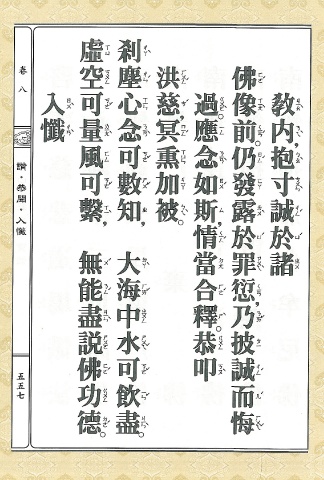 教內，抱寸誠於諸
佛像前。仍發露於罪愆，乃披誠而悔
過。應念如斯，情當合釋。恭叩
洪慈，冥熏加被。
剎塵心念可數知，大海中水可飲盡。
虛空可量風可繫，無能盡說佛功德。
入懺
卷八
讚．恭聞．入懺
五五七